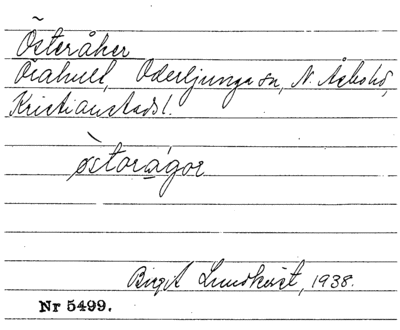 Österåker
Örahult, Oderljunga sn, N. Åsbo hd,
Kristianstads l.
östorågor
Birgit Lundkvist, 1938.
Nr 5499.